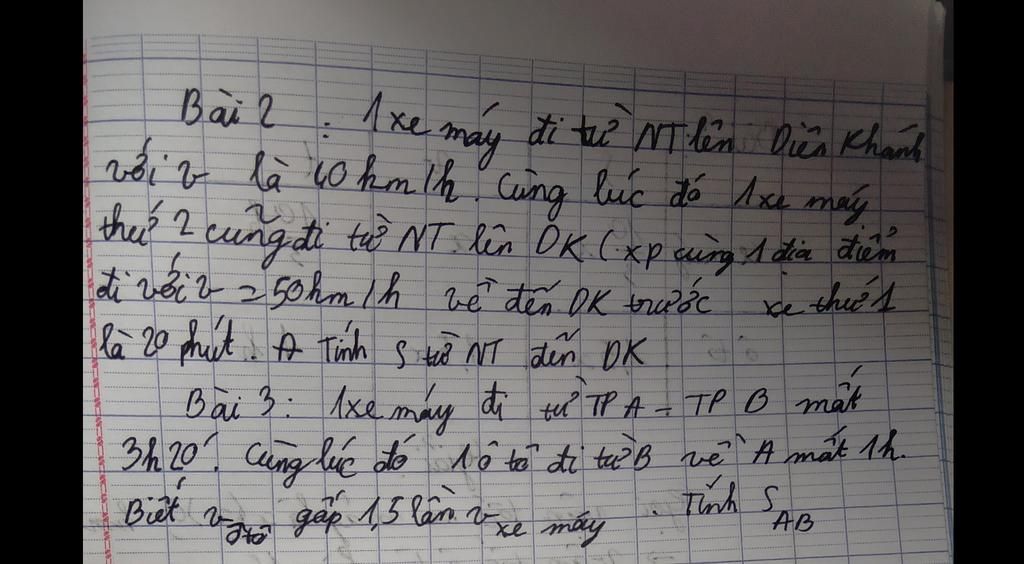 Bài 2 : 1 xe máy đi từ NT lên Diên Khánh
với v là 40 km/h. Cùng lúc đó 1 xe máy
thứ 2 cũng đi từ NT lên DK (xp cùng 1 địa điểm
đi với v = 50 km/h về đến DK trước xe thứ 1
là 20 phút. A Tính S từ NT đến DK
Bài 3: 1 xe máy đi từ TP A - TP B mất
3h20'. Cùng lúc đó 1 ô tô đi từ B về A mất 1h.
Biết v ôtô gấp 1,5 lần v xe máy. Tính S AB